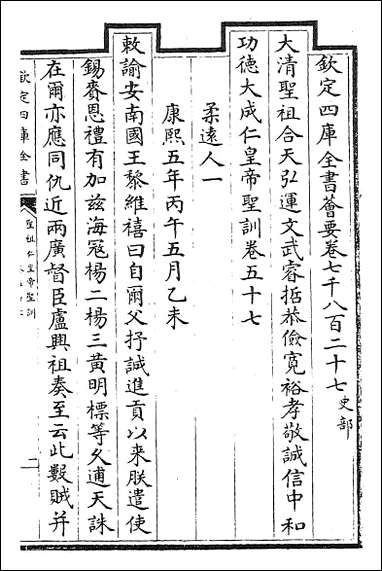 欽定四庫全書薈要卷七千八百二十七史部
大清聖祖合天弘運文武睿哲恭儉寬裕孝敬誠信中和
功德大成仁皇帝聖訓卷五十七
柔遠人一
康熙五年丙午五月乙未
敕諭安南國王黎維禧曰自爾父抒誠進貢以來朕遣使
錫賚恩禮有加兹海冦楊二楊三黄明標等乆逋天誅
在爾亦應同仇近兩廣督臣盧興祖奏至云此數賊并
欽定四庫全書
聖祖仁皇帝聖訓
一